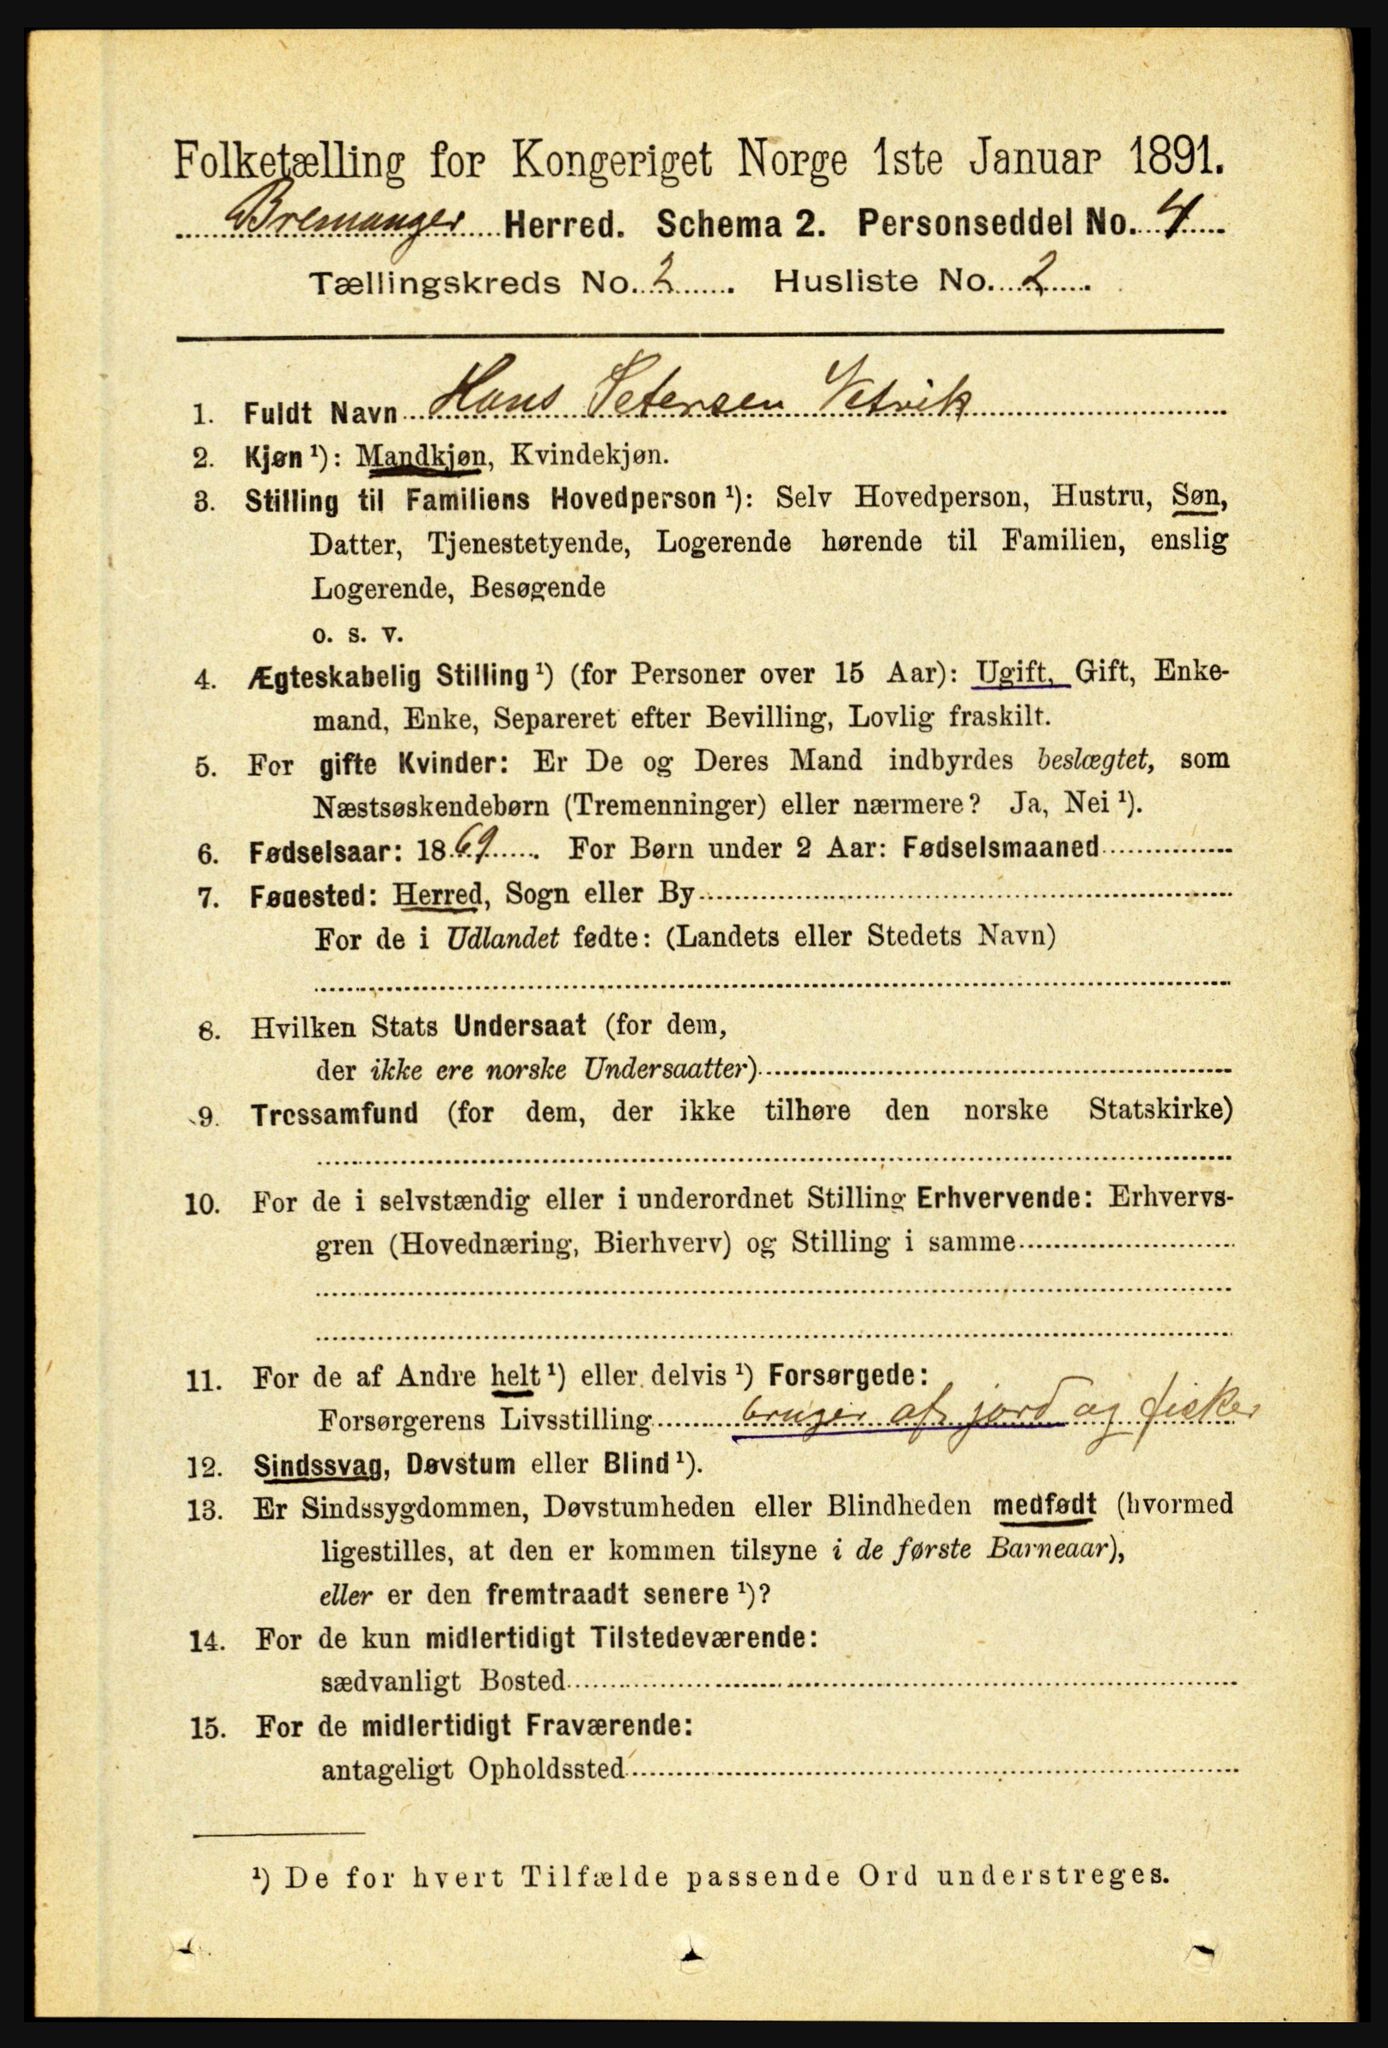 Folketælling for Kongeriget Norge 1ste Januar 1891.
Bremanger Herred. Schema 2. Personseddel No. 4
Tællingskreds No. 2. Husliste No. 2.
1. Fuldt Navn Hans Petersen Vetvik
2. Kjøn ¹): Mandkjøn, Kvindekjøn.
3. Stilling til Familiens Hovedperson ¹): Selv Hovedperson, Hustru, Søn,
Datter, Tjenestetyende, Logerende hørende til Familien, enslig
Logerende, Besøgende
o. s. v.
4. Ægteskabelig Stilling ¹) (for Personer over 15 Aar): Ugift, Gift, Enke-
mand, Enke, Separeret efter Bevilling, Lovlig fraskilt.
5. For gifte Kvinder: Er De og Deres Mand indbyrdes beslægtet, som
Næstsøskendebørn (Tremenninger) eller nærmere? Ja, Nei ¹).
6. Fødselsaar: 1869. For Børn under 2 Aar: Fødselsmaaned
7. Fødested: Herred, Sogn eller By
For de i Udlandet fødte: (Landets eller Stedets Navn)
8. Hvilken Stats Undersaat (for dem,
der ikke ere norske Undersaatter)
9. Trossamfund (for dem, der ikke tilhøre den norske Statskirke)
10. For de i selvstændig eller i underordnet Stilling Erhvervende: Erhvervs-
gren (Hovednæring, Bierhverv) og Stilling i samme
11. For de af Andre helt ¹) eller delvis ¹) Forsørgede:
Forsørgerens Livsstilling bruger af jord og fisker
12. Sindssvag, Døvstum eller Blind ¹).
13. Er Sindssygdommen, Døvstumheden eller Blindheden medfødt (hvormed
ligestilles, at den er kommen tilsyne i de første Barneaar),
eller er den fremtraadt senere ¹)?
14. For de kun midlertidigt Tilstedeværende:
sædvanligt Bosted
15. For de midlertidigt Fraværende:
antageligt Opholdssted
¹) De for hvert Tilfælde passende Ord understreges.